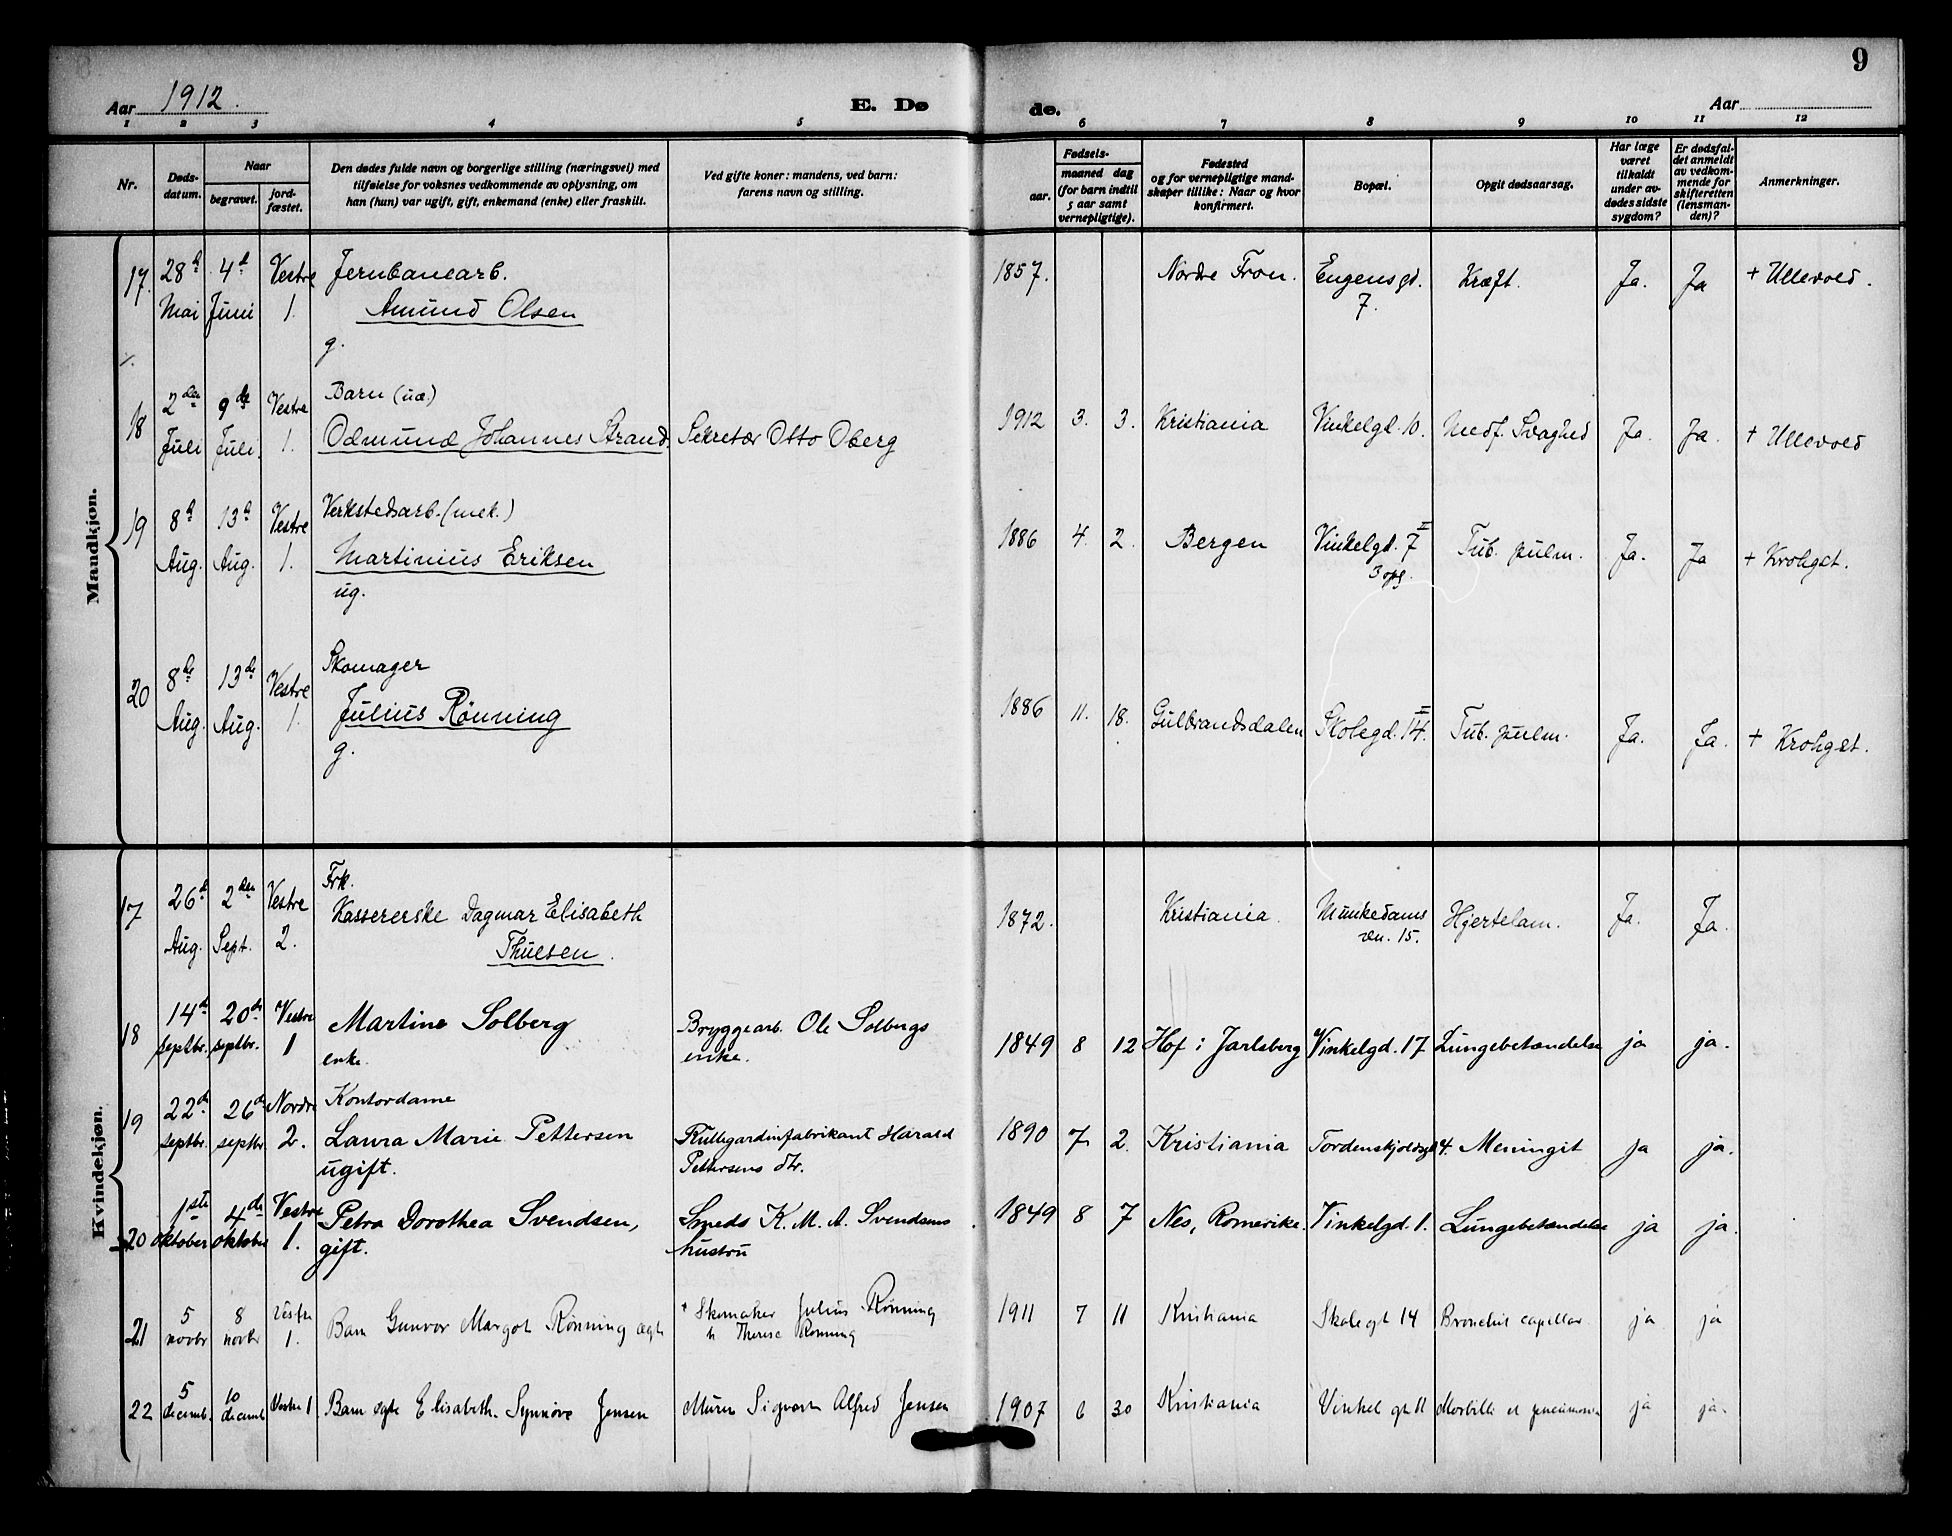 9
Aar 1912.
E. Dø
de.
Aar
1 2 3 4 5 6 7 8 9 10 11 12
Nr.
Døds-
datum.
Naar
begravet.
jord-
fæstet.
Den dødes fulde navn og borgerlige stilling (næringsvei) med
tilføielse for voksnes vedkommende av oplysning, om
han (hun) var ugift, gift, enkemand (enke) eller fraskilt.
Ved gifte koner: mandens, ved barn:
farens navn og stilling.
Fødsels-
aar.
maaned dag
(for barn indtil
5 aar samt
vernepligtige).
Fødested
og for vernepligtige mand-
skaper tillike: Naar og hvor
konfirmert.
Bopæl.
Opgit dødsaarsag.
Har læge
været
tilkaldt
under av-
dødes sidste
sygdom?
Er dødsfal-
det anmeldt
av vedkom-
mende for
skifteretten
(lensman-
den)?
Anmerkninger.
Mandkjøn.
17. 28d 4d Vestre Jernbanearb. 1857. Nordre Fron. Eugensgd. Kræft. Ja. Ja + Ullevold.
Mai Juni 1. Amund Olsen 7.
g.
18 2den 9de Vestre Barn (uæ.) 1912 3. 3. Kristiania Vinkelgd. 10. Medf. Svaghed Ja. Ja. + Ullevold
Juli Juli. 1. Odmund Johannes Strand. Sekretær Otto Oberg
19 8d 13d Vestre Verkstedsarb. (mek.) 1886 4. 2. Bergen Vinkelgd. 7 II Tub. pulm. Ja. Ja + Krohgst.
Aug. Aug. 1. Martinius Eriksen 3 opg.
ug.
20 8de 13de Vestre Skomager 1886 11. 18. Gulbrandsdalen Skolegd. 14. II Tub. pulm. Ja. Ja. + Krohgst.
Aug. Aug. 1. Julius Rønning
g.
Kvindekjøn.
17 26d 2den Vestre Frk. 1872. Kristiania. Munkedams Hjertelam. Ja. Ja.
Aug. Sept. 2. Kassererske Dagmar Elisabeth vn. 15.
Thuesen.
18 14d 20de Vestre Martine Solberg Bryggearb. Ole Solbergs 1849 8 12 Hof i Jarlsberg Vinkelgd. 17 Lungebetændelse ja ja.
septbr. septbr. 1 enke. enke.
19 22d 26d Nordre Kontordame 1890 7 2. Kristiania Tordenskjoldsgd 4. Meningit ja ja.
septbr. septbr 2. Laura Marie Pettersen Rullegardinfabrikant Harald
ugift. Pettersens dtr.
20 1ste 4de Vestre Petra Dorothea Svendsen, Smeds K. M. A. Svendsens 1849 8 7 Nes, Romerike. Vinkelgd. 1. Lungebetændelse ja ja.
oktober oktober 1. gift. hustru
21 5 8 Vestre + Skomaker Julius Rønning 1911 7 11 Kristiania Skolegt 14 Bronchit capillar ja ja
novbr novbr 1. Barn Gunvor Margot Rønning ægte h Therese Rønning
22 5 10 Vestre 1. Barn ægte Elisabeth Synnøve Jensen Murer Sigvart Alfred Jensen 1907 6 30 Kristiania Vinkel gt 11 Morbilli et pneumonia ja ja.
decemb. decemb